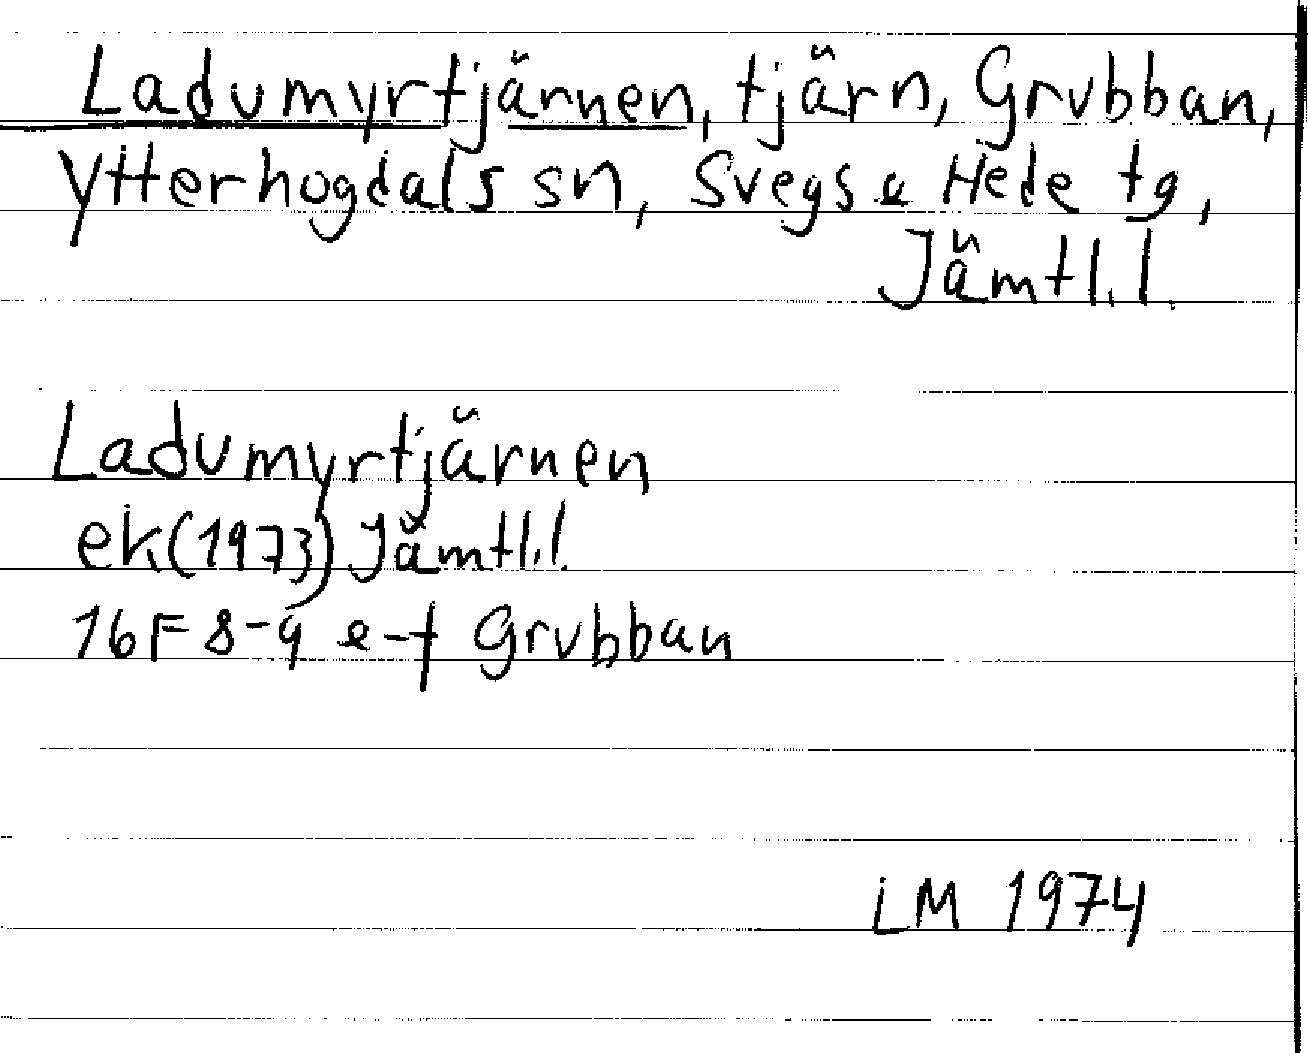 Ladumyrtjärnen, tjärn, Grubban,
Ytterhogdals sn, Svegs o Hede tg,
Jämtl.l.
Ladumyrtjärnen
ek(1973) Jämtl.l.
16F 8-9 e-f Grubban
LM 1974